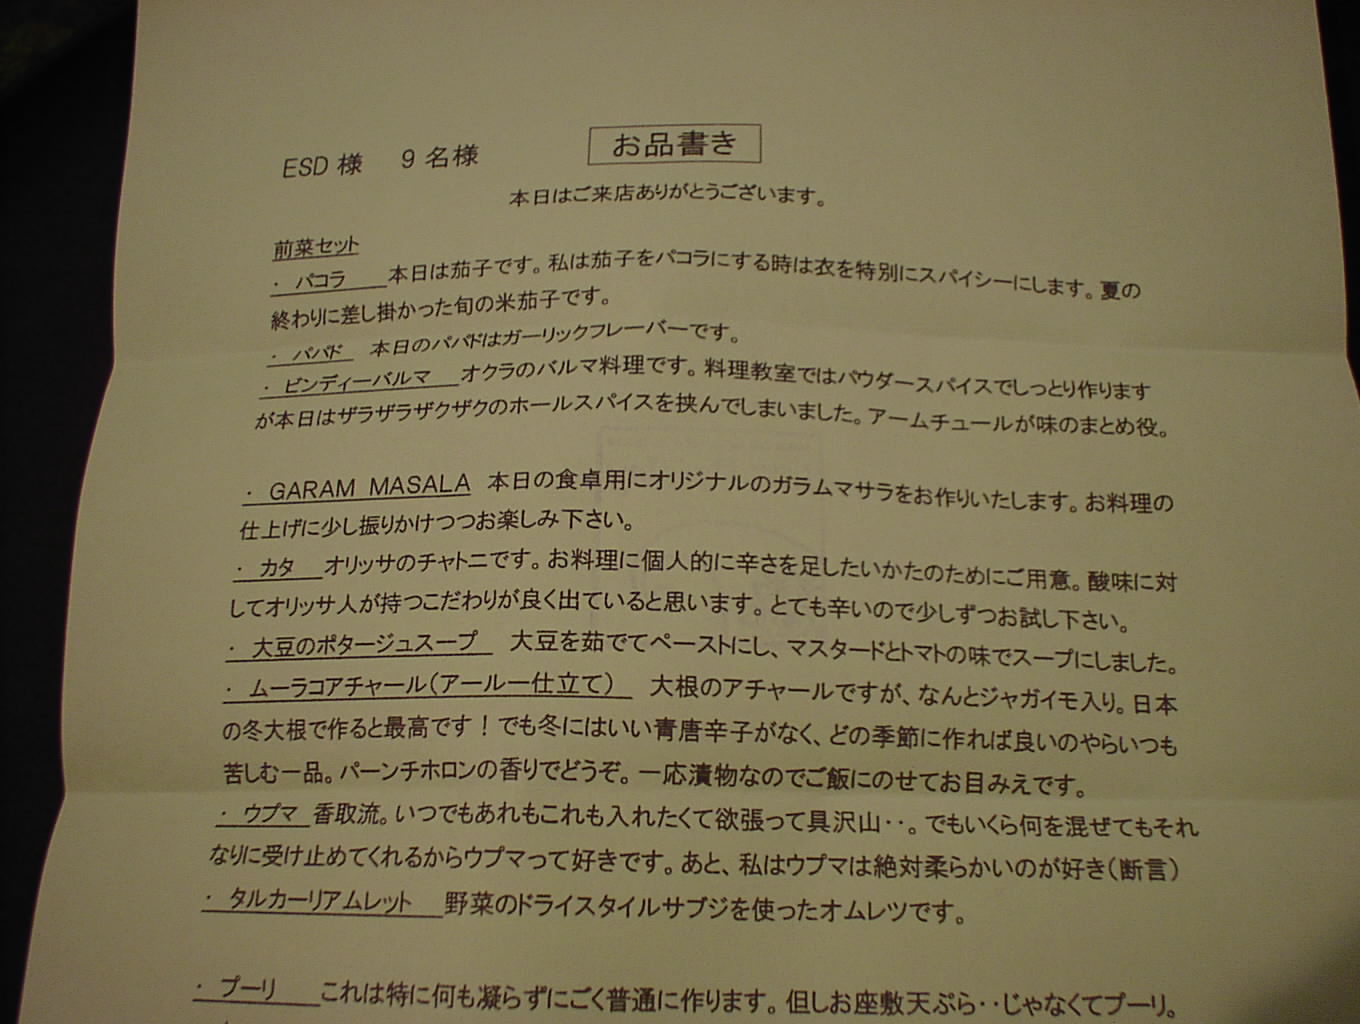 ESD 様　9 名様
お品書き
本日はご来店ありがとうございます。
前菜セット
・ パコラ　本日は茄子です。私は茄子をパコラにする時は衣を特別にスパイシーにします。夏の
終わりに差し掛かった旬の米茄子です。
・ パパド　本日のパパドはガーリックフレーバーです。
・ ビンディーバルマ　オクラのバルマ料理です。料理教室ではパウダースパイスでしっとり作ります
が本日はザラザラザクザクのホールスパイスを挟んでしまいました。アームチュールが味のまとめ役。
・ GARAM MASALA　本日の食卓用にオリジナルのガラムマサラをお作りいたします。お料理の
仕上げに少し振りかけつつお楽しみ下さい。
・ カタ　オリッサのチャトニです。お料理に個人的に辛さを足したいかたのためにご用意。酸味に対
してオリッサ人が持つこだわりが良く出ていると思います。とても辛いので少しずつお試し下さい。
・ 大豆のポタージュスープ　大豆を茹でてペーストにし、マスタードとトマトの味でスープにしました。
・ ムーラコアチャール（アールー仕立て）　大根のアチャールですが、なんとジャガイモ入り。日本
の冬大根で作ると最高です！でも冬にはいい青唐辛子がなく、どの季節に作れば良いのやらいつも
苦しむ一品。パーンチホロンの香りでどうぞ。一応漬物なのでご飯にのせてお目みえです。
・ ウプマ　香取流。いつでもあれもこれも入れたくて欲張って具沢山‥。でもいくら何を混ぜてもそれ
なりに受け止めてくれるからウプマって好きです。あと、私はウプマは絶対柔らかいのが好き（断言）
・ タルカーリアムレット　野菜のドライスタイルサブジを使ったオムレツです。
・ プーリ　これは特に何も凝らずにごく普通に作ります。但しお座敷天ぷら‥じゃなくてプーリ。